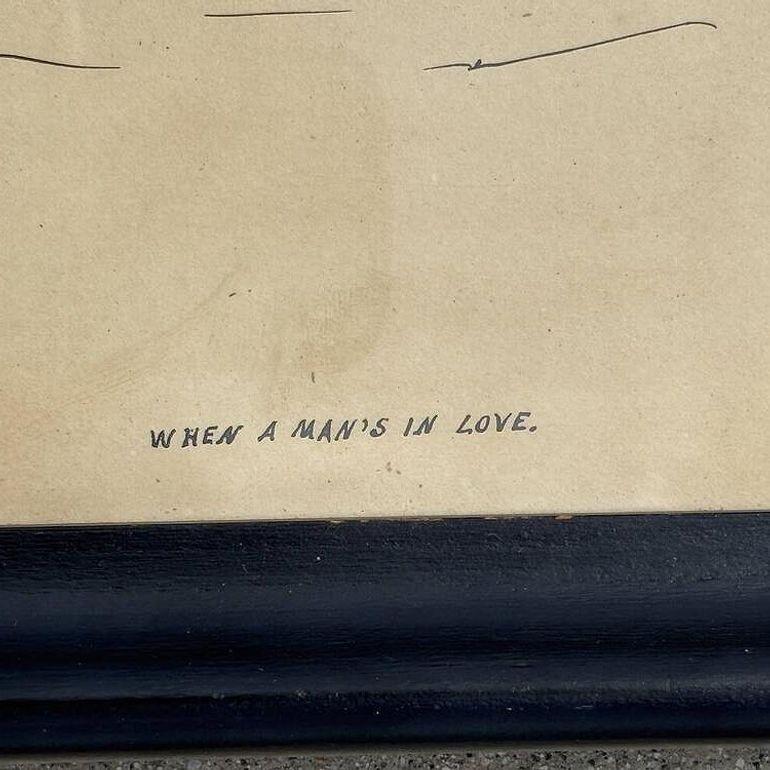 WHEN A MAN'S IN LOVE.